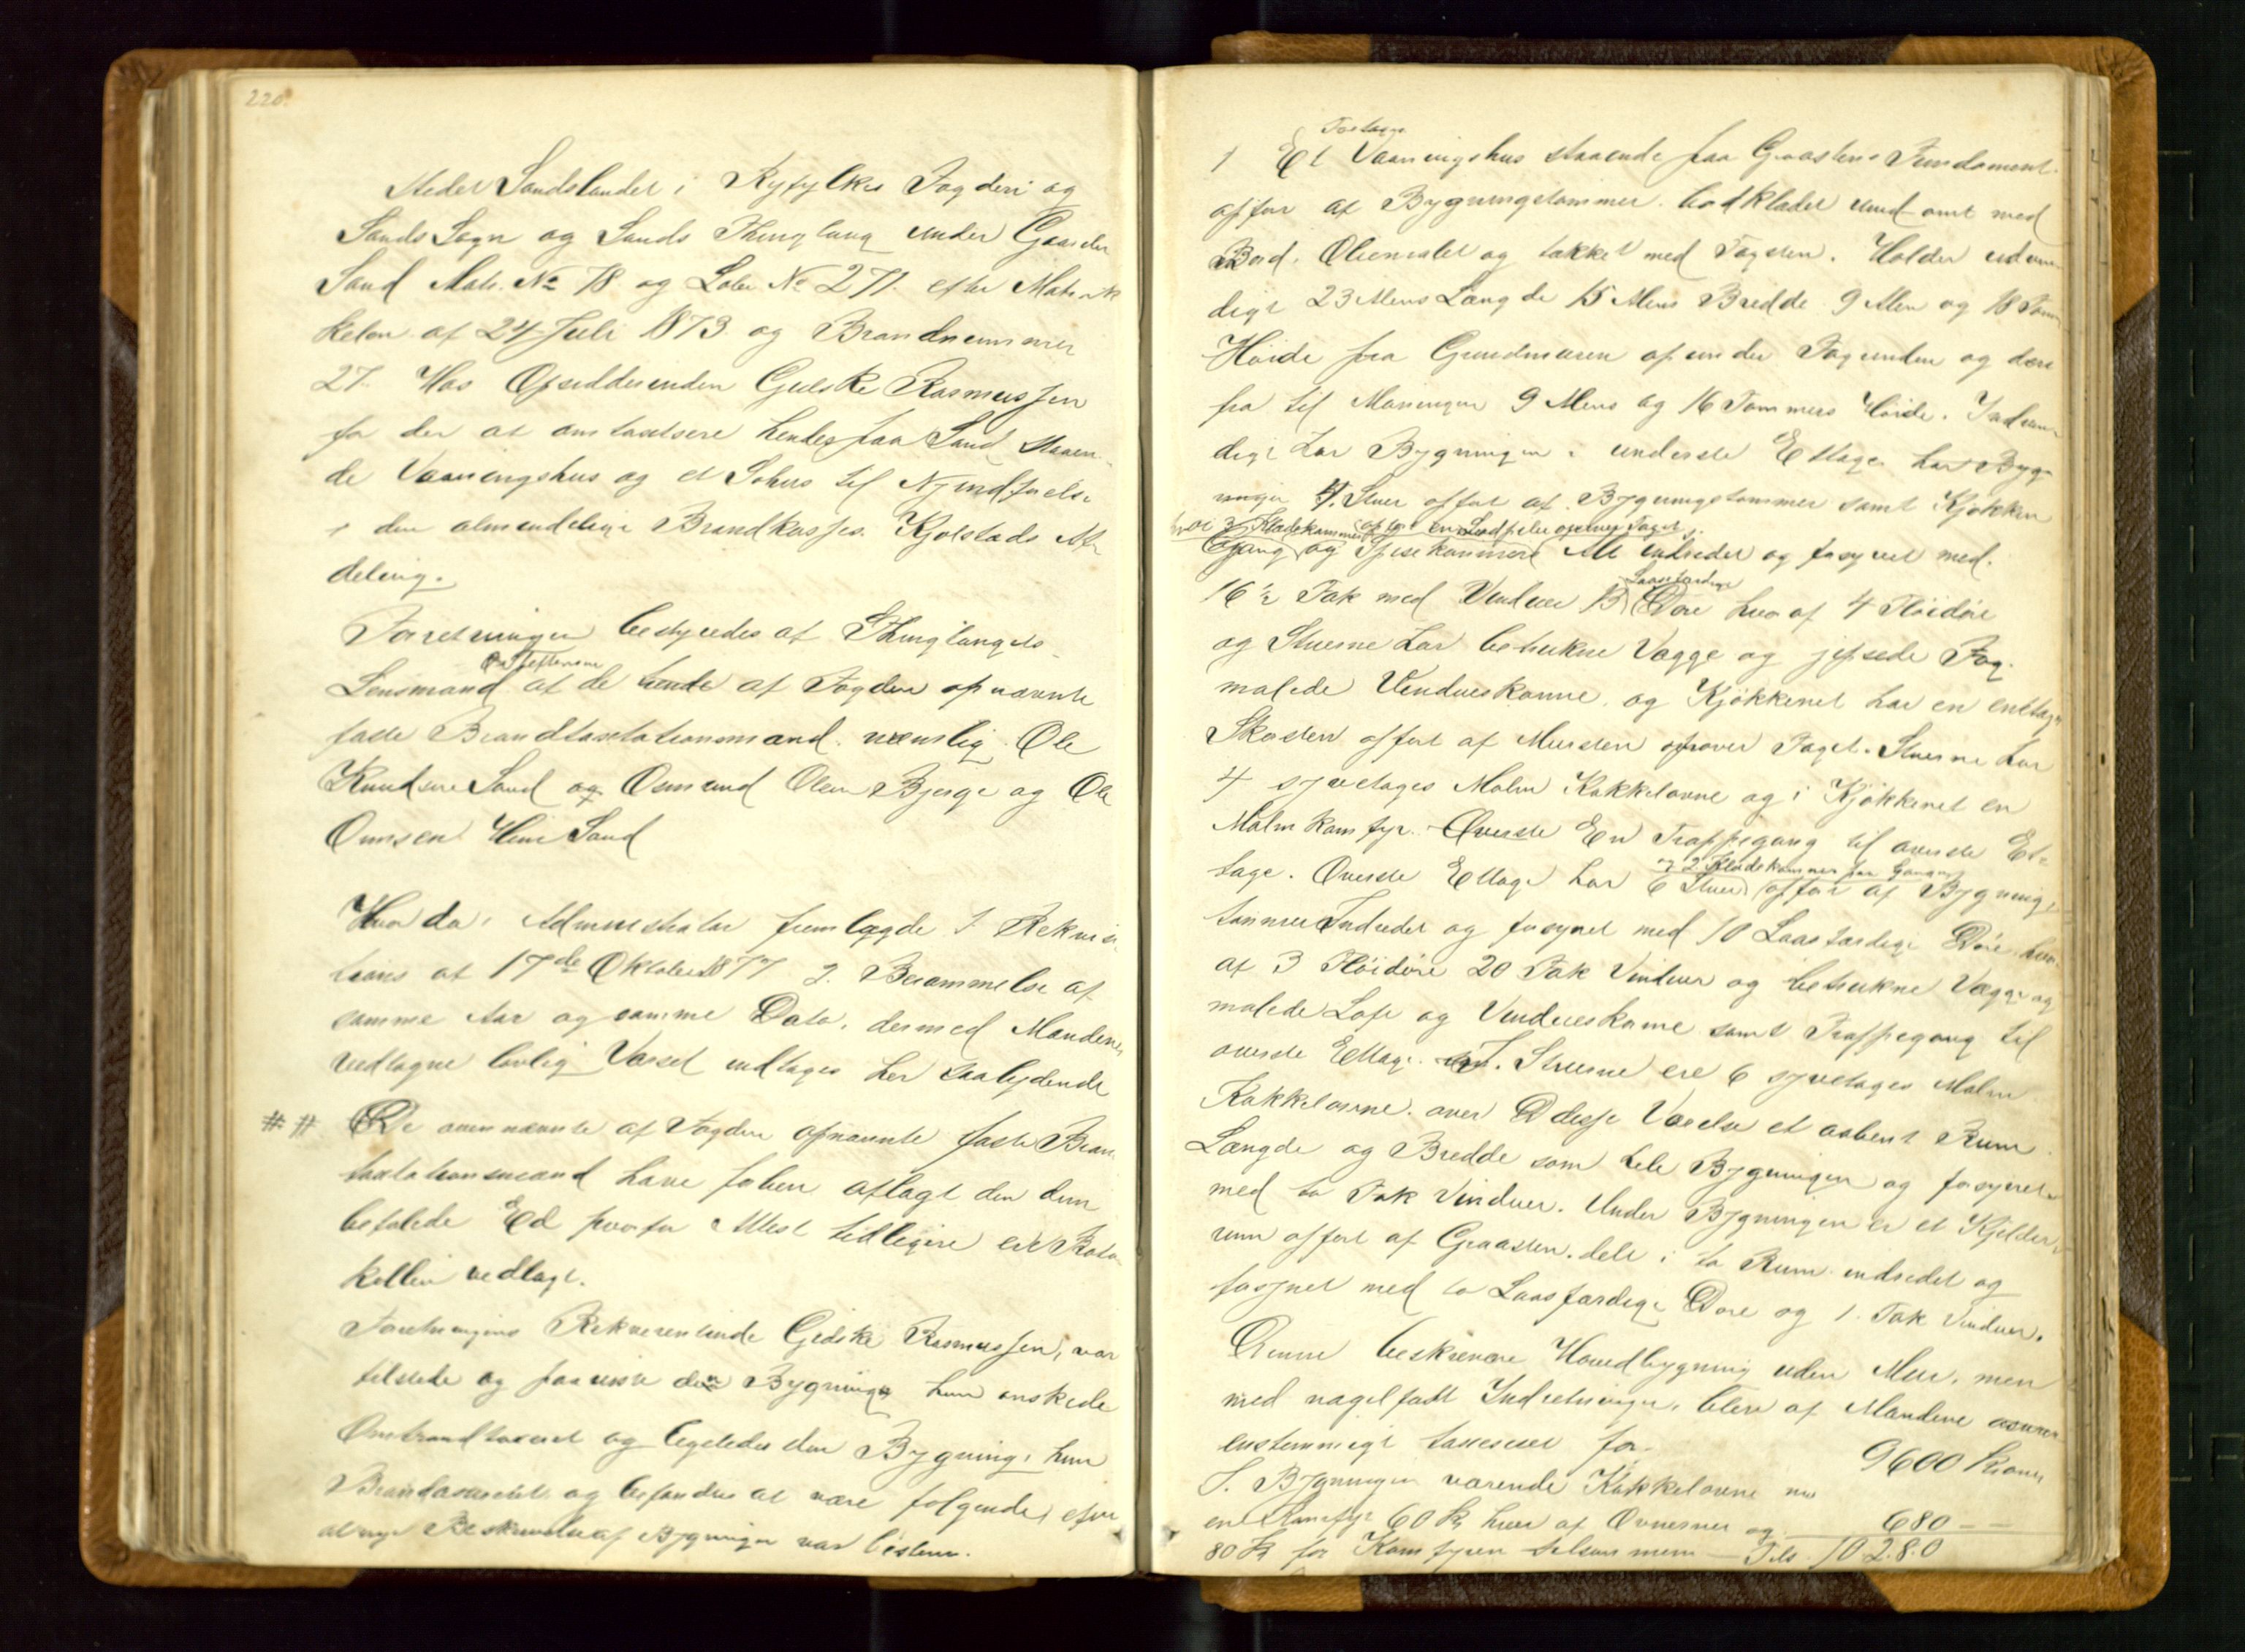 220.
Stedet Sandslandet i Ryfylkes Fogderi og
Sands Sogn og Sands Thinglaug under Gaarden
Sand Matr. No 78 og Løbe No 271 efter Matrik
kelen af 24 Juli 1873 og Brandnummer
27. Hos Opsidderinden Giedske Rasmussen
for der at omtaxere hendes paa Sand staaen
de Vaaningshus og et Søhus til Nyindførelse
i den almindelige Brandkasses Kjøbstads Af
deling.
Forretningen bestyredes af Thinglaugets
Lensmand af de tvende af Fogden opnævnte
faste Brandtaxtationsmænd nemlig Ole
Knudsen Sand og Osmund Olsen Bjerge og Ole
Omsen Hiim Sand
Hvor da Administrator fremlagde 1. Rekvisi
tions af 17de Oktober 1877 2. Berammelse af
samme Aar og samme Dato, dermed Mændenes
vedtagne lovlig Varsel indtages her saalydende
## De ovennævnte af Fogden opnævnte faste Bran
taxtationsmænd have forhen aflagt den dem
befalede Ed hvorfor Attest tidligere er Proto
kollen vedlagt.
Forretningens Rekvirentinde Giedske Rasmussen, var
tilstede og paaviste den Bygning hun ønskede
Ombrandtaxeret og ligeledes den Bygning, hun
Brandassureret og befandtes at være følgende, efter
at nye Beskrivelse af Bygningen var bestemt.
Toetages
1 Et Vaaningshus staaende paa Graastens Fundament
opført af Bygningstømmer bordklædet rundt omt med
Bord, Oliemalet og tækket med Tagsten. Holder udven
digt 23 Alens Længde 15 Alens Bredde 9 Alen og 18 Tom
Høide fra Grundmuren op under Tagrenden og der
fra til Møningen 9 Alens og 16 Tommers Høide. Indven
digt har Bygningen i underste Ettage har Byg
ningen 4 Stuer opført af Bygningstømmer samt Kjøkken
Klædekammer
Gang og Spisekammere Alt indredet og forsynet med
Laasfærdige
16½ Fak med Vinduer 13 Døre hvoraf 4 Fløidøre
og Stuerne har betrukne Vægge og gipsede Tag
malede Vindueskarme og Kjøkkenet har en enettages
Skorsten opført af Mursten opover Taget. Stuerne har
4 syvetages Malm Kakkelovne og i Kjøkkenet en
Malm Komfyr. Øverste En Trappegang til øverste Et
og 2 Klædekammer paa Gangen
tage. Øverste Ettage har 6 Stuer opført af Bygnings
tømmer Indredet og forsynet med 10 Laasfærdige Døre hvor
af 3 Fløidøre 20 Fak Vinduer og betrukne Vægge og
malede Loft og Vindueskarme samt Trappegang til
øverste Ettage. I Stuerne ere 6 syvetages Malm
Kakkelovne. over Disse Værelse et aabent Rum
Længde og Bredde som hele Bygningen og forsynet
med to Fak Vinduer. Under Bygningen er et Kjelder
rum opført af Graasten. delt i to Rum indredet og
forsynet med to Laasfærdige Døre og 1. Fak Vinduer.
Denne beskrevne Hovedbygning uden Mur, men
med nagelfast Indretninger, blev af Mændene
enstemmigt taxeret for 9600 Kroner
I Bygningen værende Kakkelovne
en Komfyr 60 Kr hver af Ovnerne og 680 —
80 Kr for Komfyren tilsammen — Tils. 10280